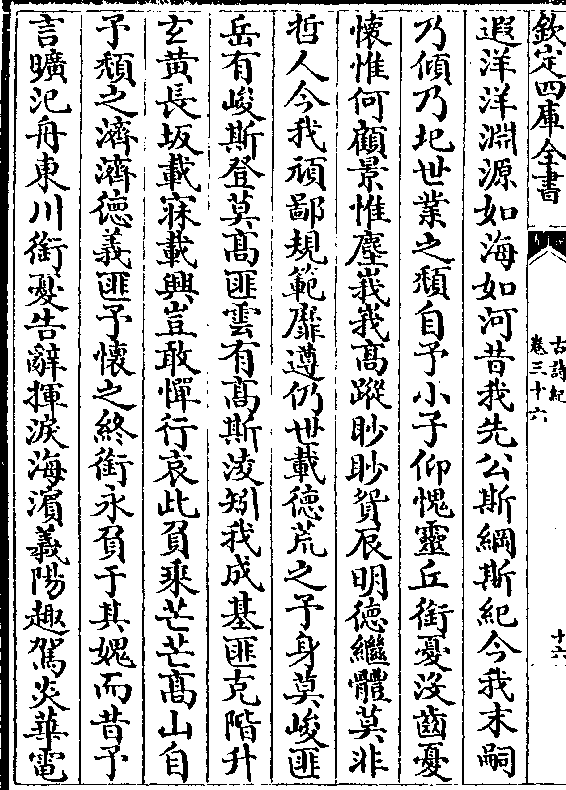 欽定四庫全書
古詩紀
卷三十六
十六
遐洋洋淵源如海如河昔我先公斯綱斯紀今我末嗣
乃傾乃圮世業之頹自予小子仰愧靈丘銜憂没齒憂
懷惟何顧景惟塵峩峩髙蹤眇眇貧辰明德繼體莫非
哲人今我頑鄙規範靡遵仍世載德荒之予身莫峻匪
岳有峻斯登莫髙匪雲有髙斯淩矧我成基匪克階升
玄黄長坂載寐載興豈敢憚行哀此負乘芒芒髙山自
予頹之濟濟德義匪予懐之終銜永負于其媿而昔予
言曠汜舟東川銜憂告辭揮淚海濵義陽趣駕炎華電